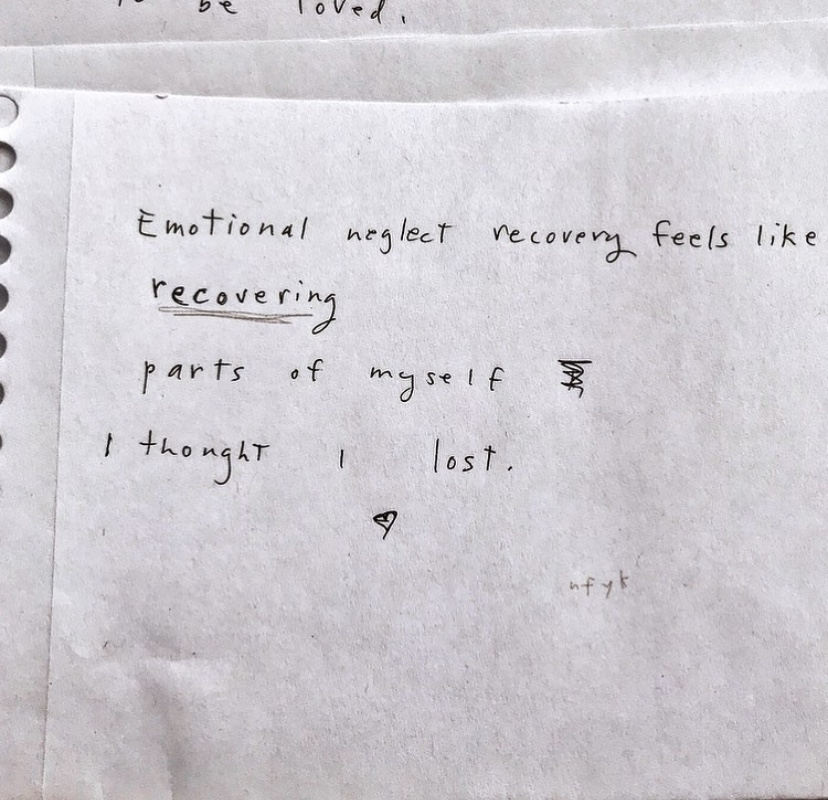 to be loved.
Emotional neglect recovery feels like
recovering
parts of myself
I thought I lost.
nfyk